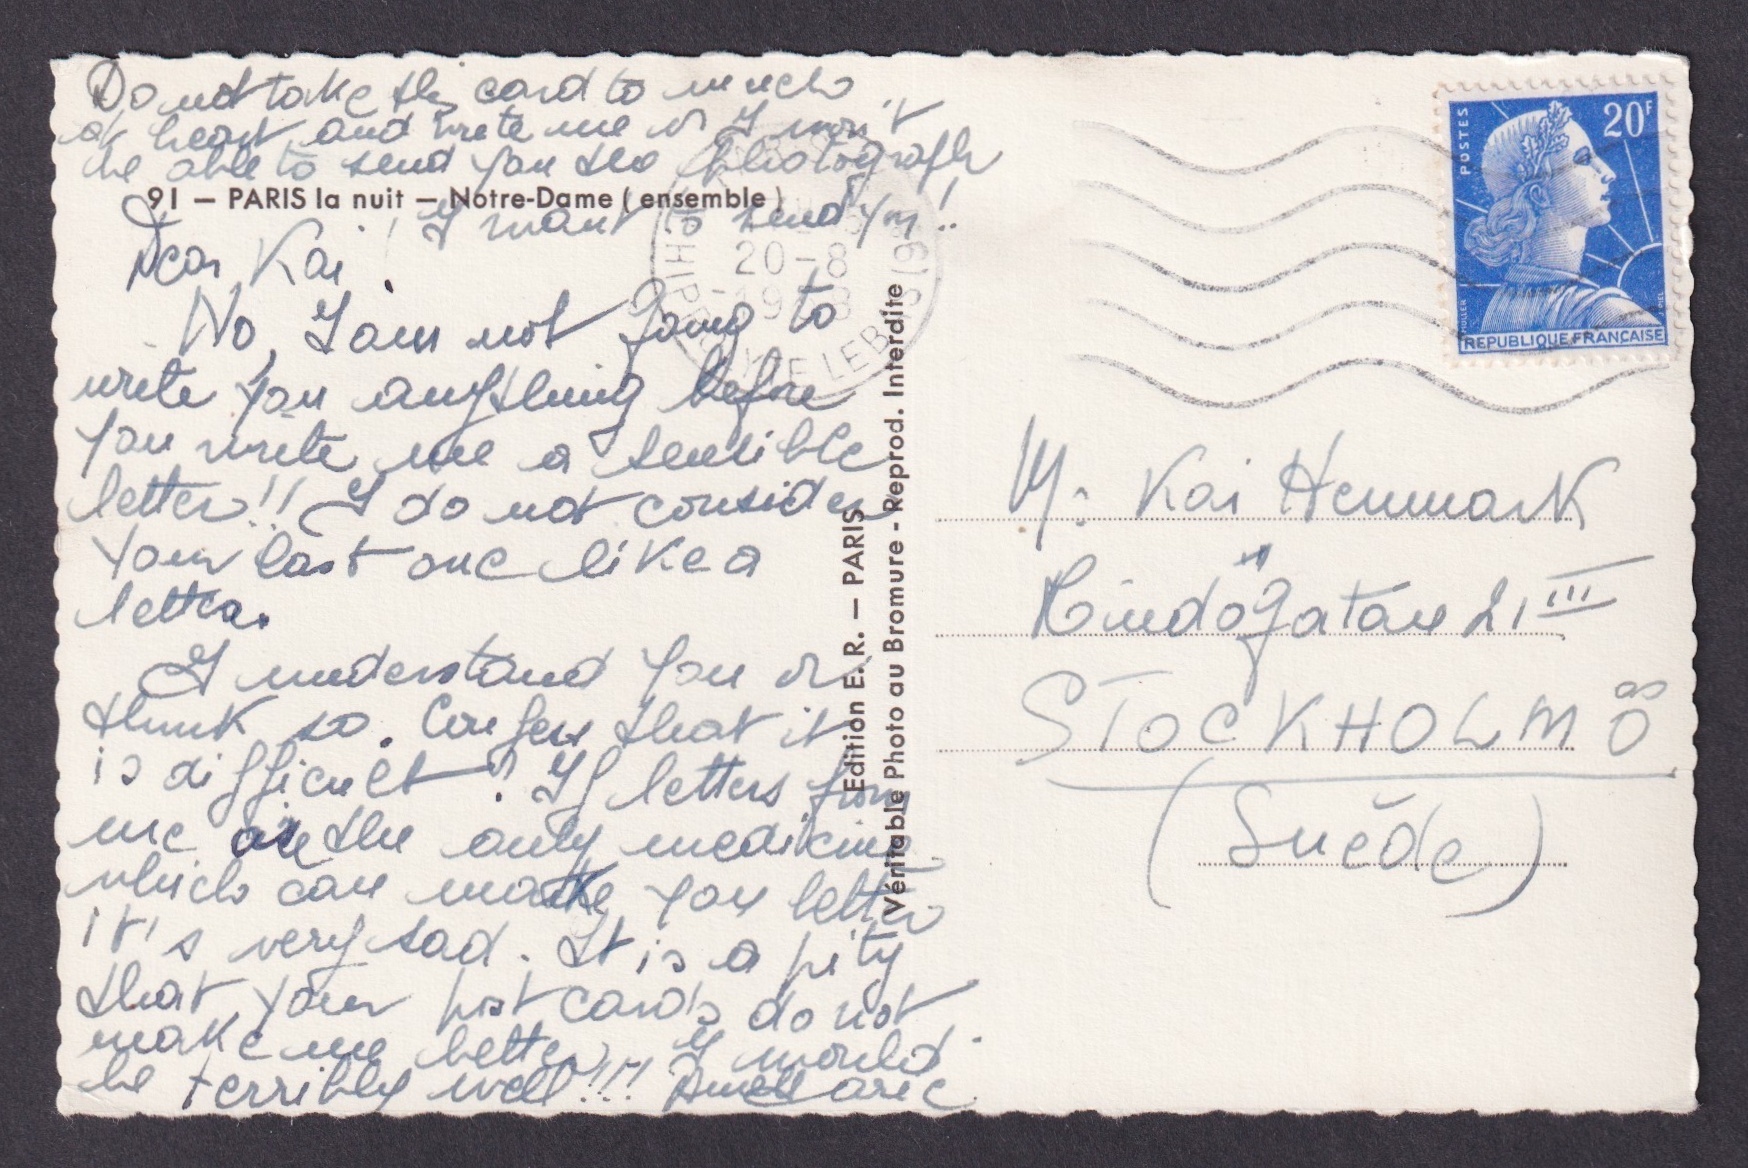 Do not take this card to much
at heart and write me or I won't
be able to send you the photografh
I want to send you!!
91 — PARIS la nuit — Notre-Dame ( ensemble )
Dear Kai!
No, I am not going to
write you anything before
you write me a sensible
letter!! I do not consider
your last one like a
letter.
I understand you or
think so. Confess that it
is difficult! If letters from
me are the only medicine
which can make you better
it's very sad. It is a pity
that your post cards do not
make me better, I would
be terribly well!!!
Edition E. R. — PARIS
Véritable Photo au Bromure - Reprod. Interdite
20 - 8
POSTES
20F
REPUBLIQUE FRANÇAISE
M. Kai Henmark
Rindögatan 21 III
STOCKHOLM Ö
(Suède)